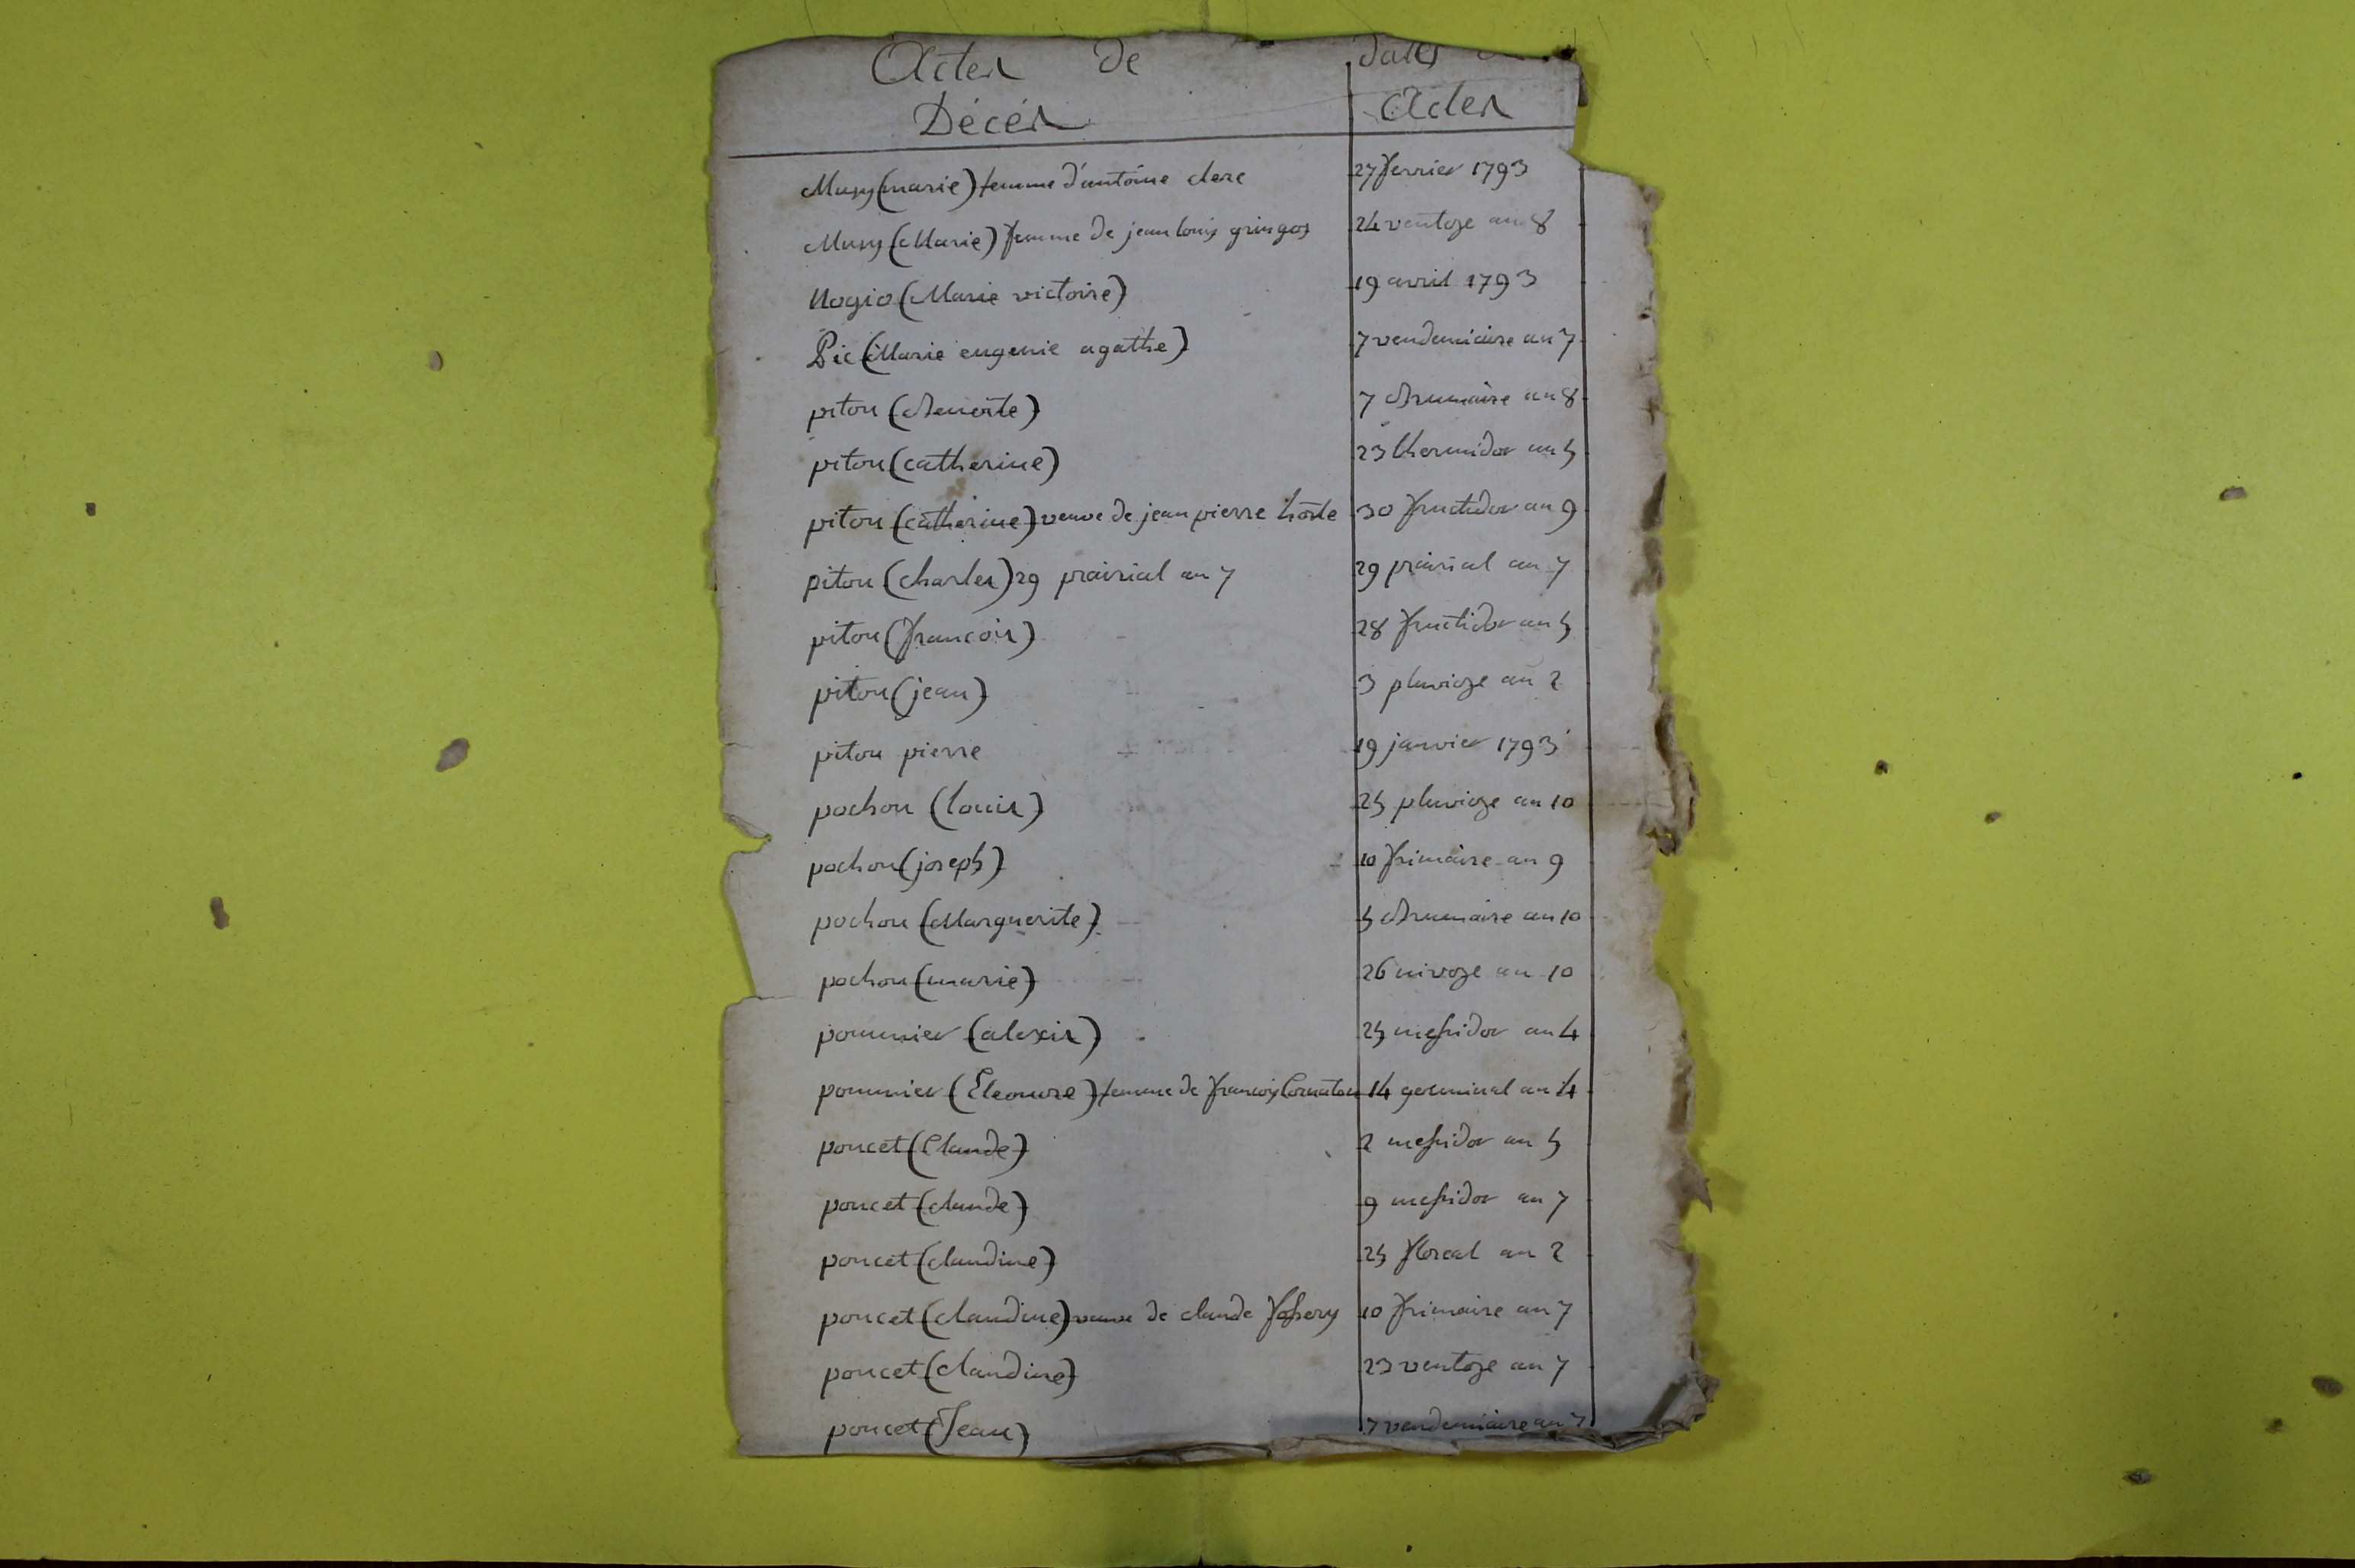 Actes de dates
Décès Actes
Musy (marie) femme d'antoine clerc 27 fevrier 1793
Musy (Marie) femme de jean louis gringos 24 ventoze an 8
Nogio (Marie victoire) 19 avril 1793
Pic (Marie eugenie agathe) 7 vendemiaire an 7
pitou (Benoite) 7 Brumaire an 8
pitou (catherine) 23 thermidor an 5
pitou (catherine) veuve de jean pierre hoste 30 fructidor an 9
pitou (charles) 29 prairial an 7 29 prairial an 7
pitou (francois) 28 fructidor an 5
pitou (jean) 3 pluvioze an 2
pitou pierre 19 janvier 1793
pochon (louis) 25 pluvioze an 10
pochon (joseph) 10 frimaire an 9
pochon (Marguerite) 5 Brumaire an 10
pochon (marie) 26 nivoze an 10
pommier (alexis) 25 messidor an 4
pommier (Eleonore) femme de françois 14 germinal an 4
poncet (Claude) 2 messidor an 5
poncet (claude) 9 messidor an 7
poncet (claudine) 25 floreal an 2
poncet (claudine) veuve de claude 10 frimaire an 7
poncet (claudine) 23 ventoze an 7
poncet (Jean) 7 vendemiaire an 7